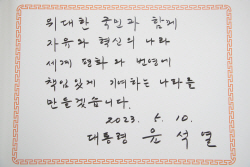 위대한 국민과 함께
자유와 혁신의 나라
세계 평화와 번영에
책임있게 기여하는 나라를
만들겠습니다.
2023. 5. 10.
대통령 윤석열